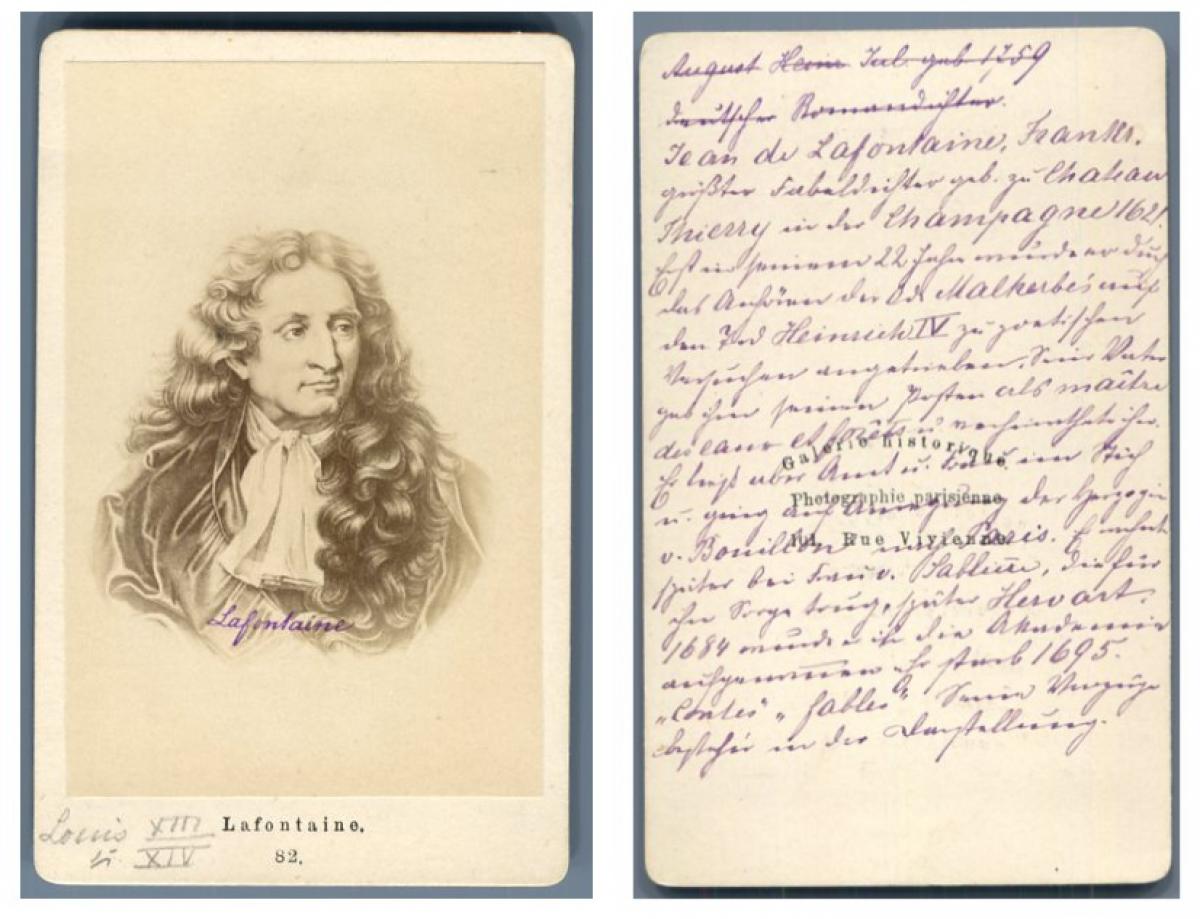 Lafontaine
Lafontaine.
82.
Louis XIII
u. XIV
August Heinr. Jul. geb 1759
deutscher Romandichter.
Jean de Lafontaine, Frankr.
größter Fabeldichter geb. zu Chateau
Thierry in der Champagne 1621.
Erst in seinem 22 Jahre wurde er durch
das Anhören der Ode Malherbe's auf
den Tod Heinrich IV zu poetischen
Versuchen angetrieben. Sein Vater
gab ihm seinen Posten als maître
des eaux et forêts u. verheirathete ihn.
Er ließ aber Amt u. im Stich
u. ging auf Anregung der Herzogin
v. Bouillon nach Paris. Er wohnte
später bei Frau v. Sablière, die für
ihn Sorge trug, später Hervart.
1684 wurde er in die Akademie
aufgenommen. Er starb 1695.
„Contes" „fables" Seine Vorzüge
bestehen in der Darstellung.
Galerie historique
Photographie parisienne
101, Rue Vivienne.